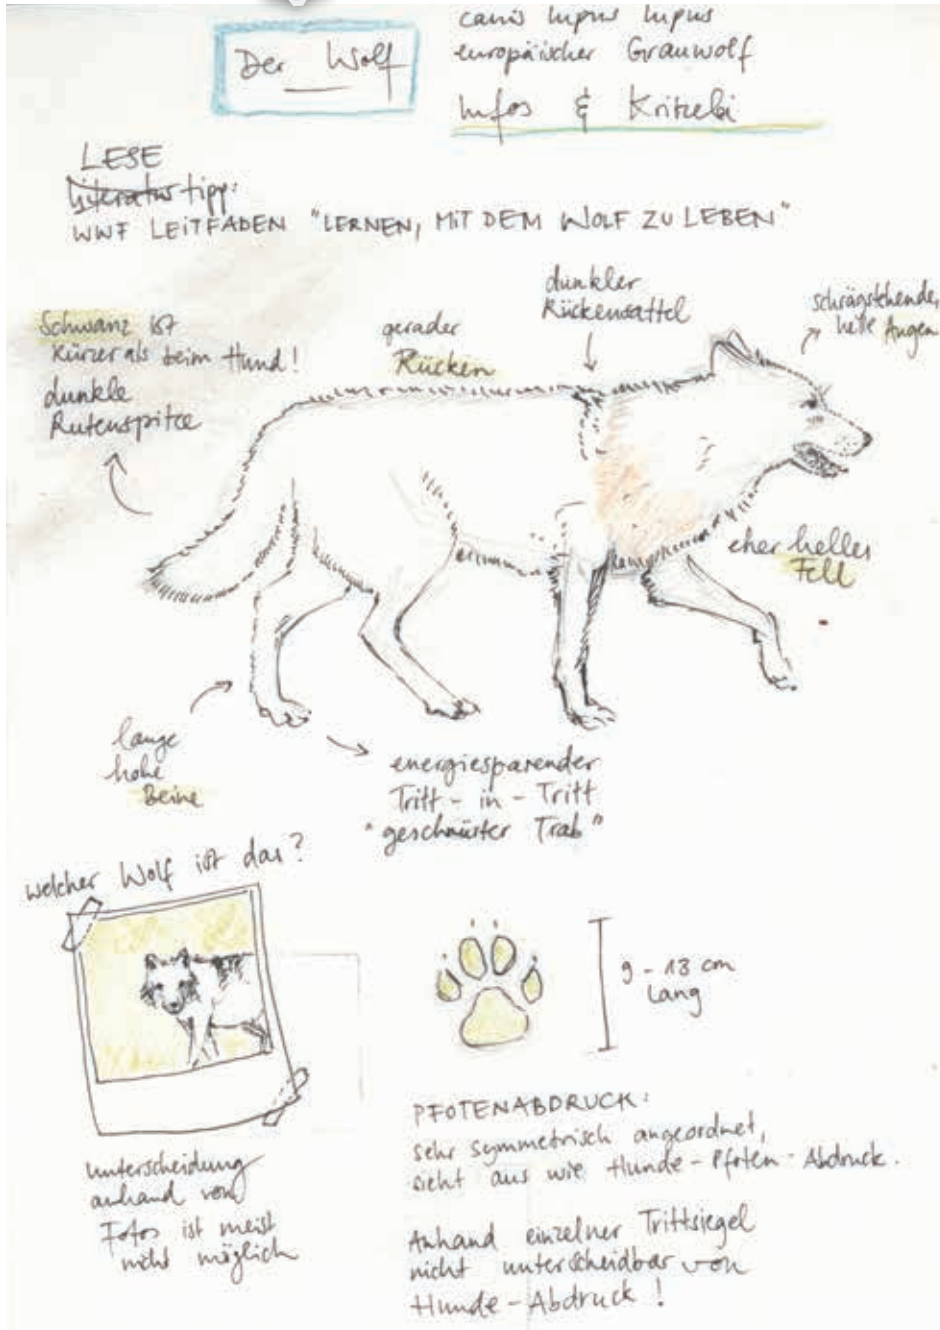 Der Wolf
canis lupus lupus
europäischer Grauwolf
Infos & Kritzelei
LESE
Literaturtipp:
WWF LEITFADEN "LERNEN, MIT DEM WOLF ZU LEBEN"
Schwanz ist
kürzer als beim Hund!
dunkle
Rutenspitze
gerader
Rücken
dunkler
Rückensattel
schrägstehende,
helle Augen
eher helles
Fell
lange
hohe
Beine
energiesparender
Tritt-in-Tritt
"geschnürter Trab"
welcher Wolf ist das?
9 - 13 cm
lang
unterscheidung
anhand von
Fotos ist meist
nicht möglich
PFOTENABDRUCK:
sehr symmetrisch angeordnet,
sieht aus wie Hunde-Pfoten-Abdruck.
Anhand einzelner Trittsiegel
nicht unterscheidbar von
Hunde-Abdruck!